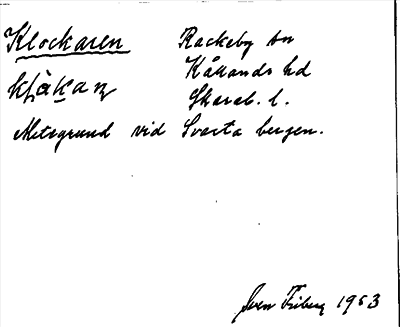 Klockaren Rackeby sn
Kållands hd
Skarab. l.
Metegrund vid Svarta bergen.
Sven Friberg 1953